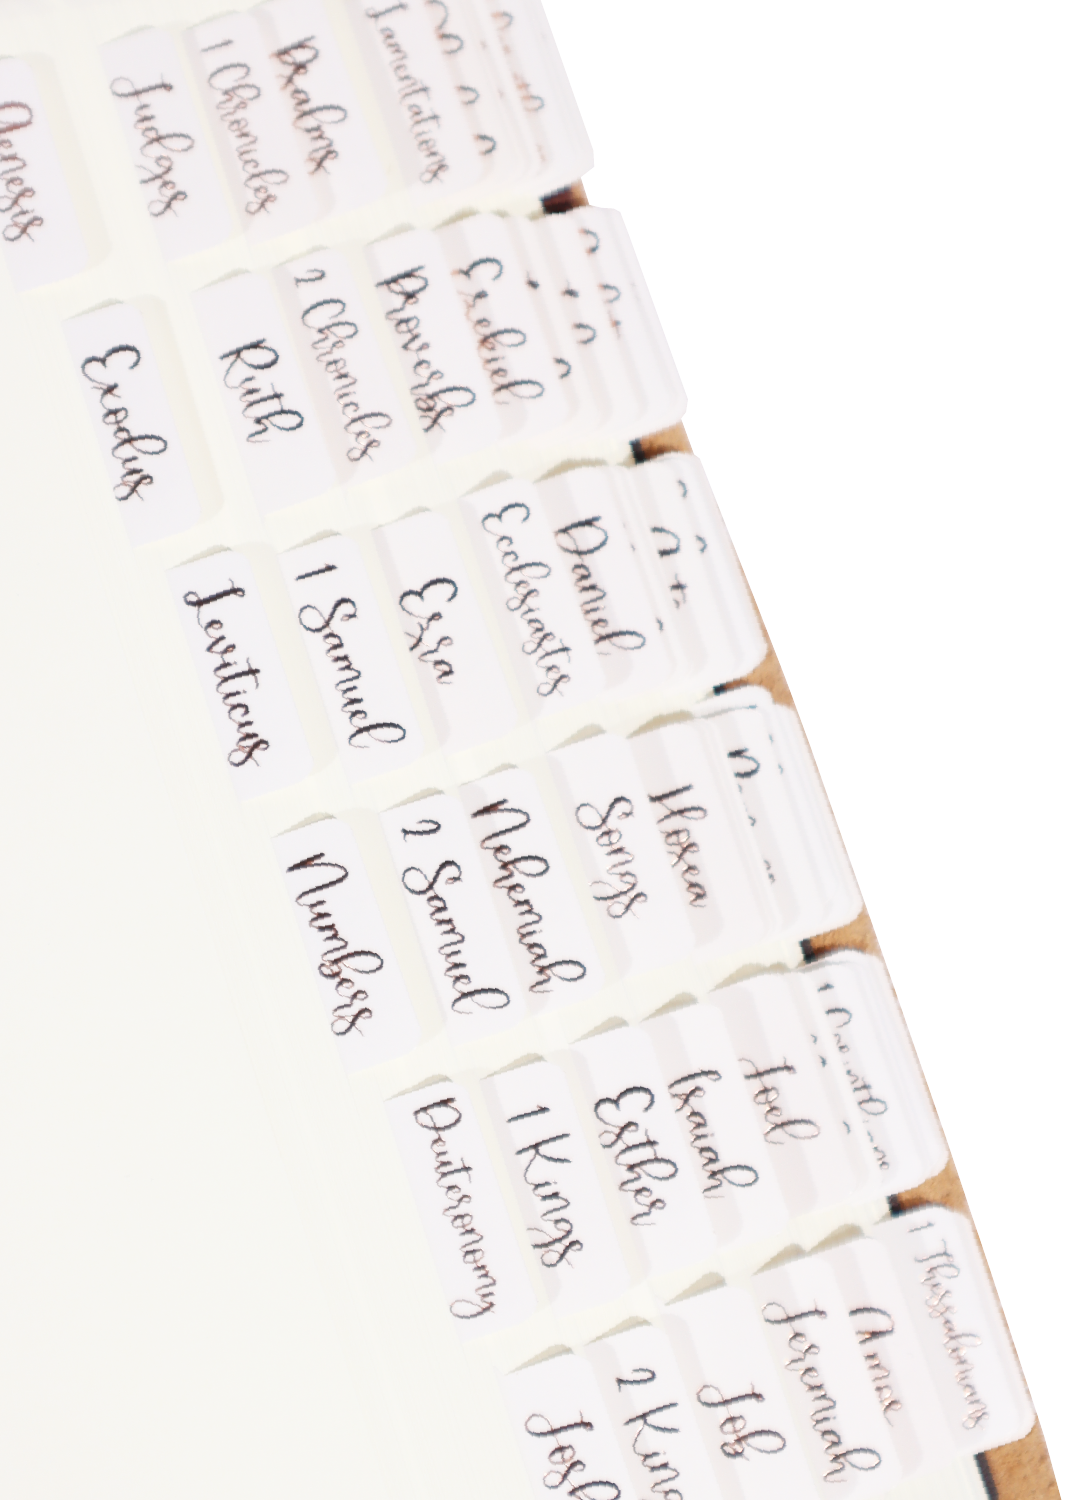 Genesis
Judges
1 Chronicles
Psalms
Lamentations
Exodus
Ruth
2 Chronicles
Proverbs
Ezekiel
Leviticus
1 Samuel
Ezra
Ecclesiastes
Daniel
Numbers
2 Samuel
Nehemiah
Songs
Hosea
Deuteronomy
1 Kings
Esther
Isaiah
Joel
2
Job
Jeremiah
Amos
1 Thessalonians